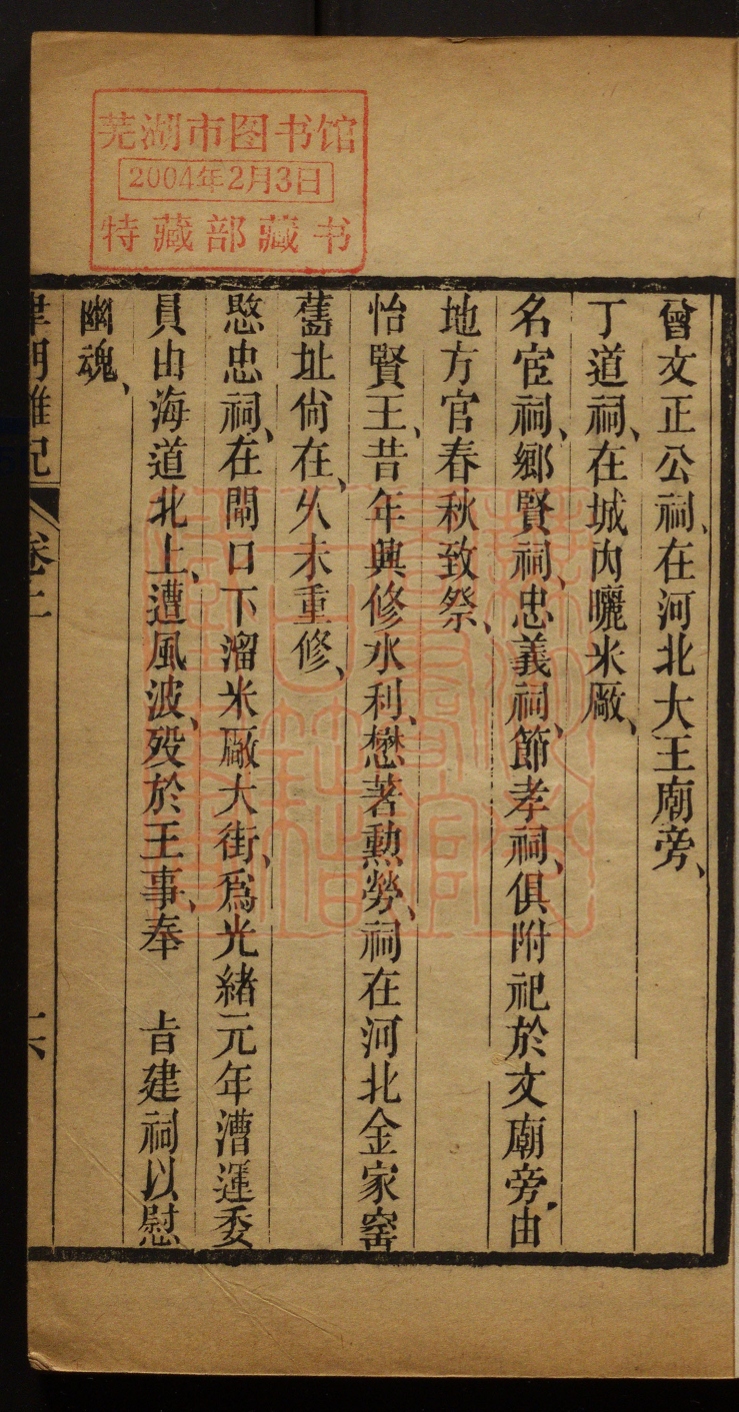 芜湖市图书馆
2004年2月3日
特藏部藏书
曾文正公祠、在河北大王廟旁、
丁道祠、在城內曬米廠、
名宦祠、鄉賢祠、忠義祠、節孝祠、俱附祀於文廟旁、由
地方官春秋致祭、
怡賢王、昔年興修水利、懋著勳勞、祠在河北金家窰
舊址尙在、久未重修、
愍忠祠、在閘口下溜米廠大街、爲光緖元年漕運委
員由海道北上、遭風波、歿於王事、奉　旨建祠以慰
幽魂、
津門雜記
卷上
十六